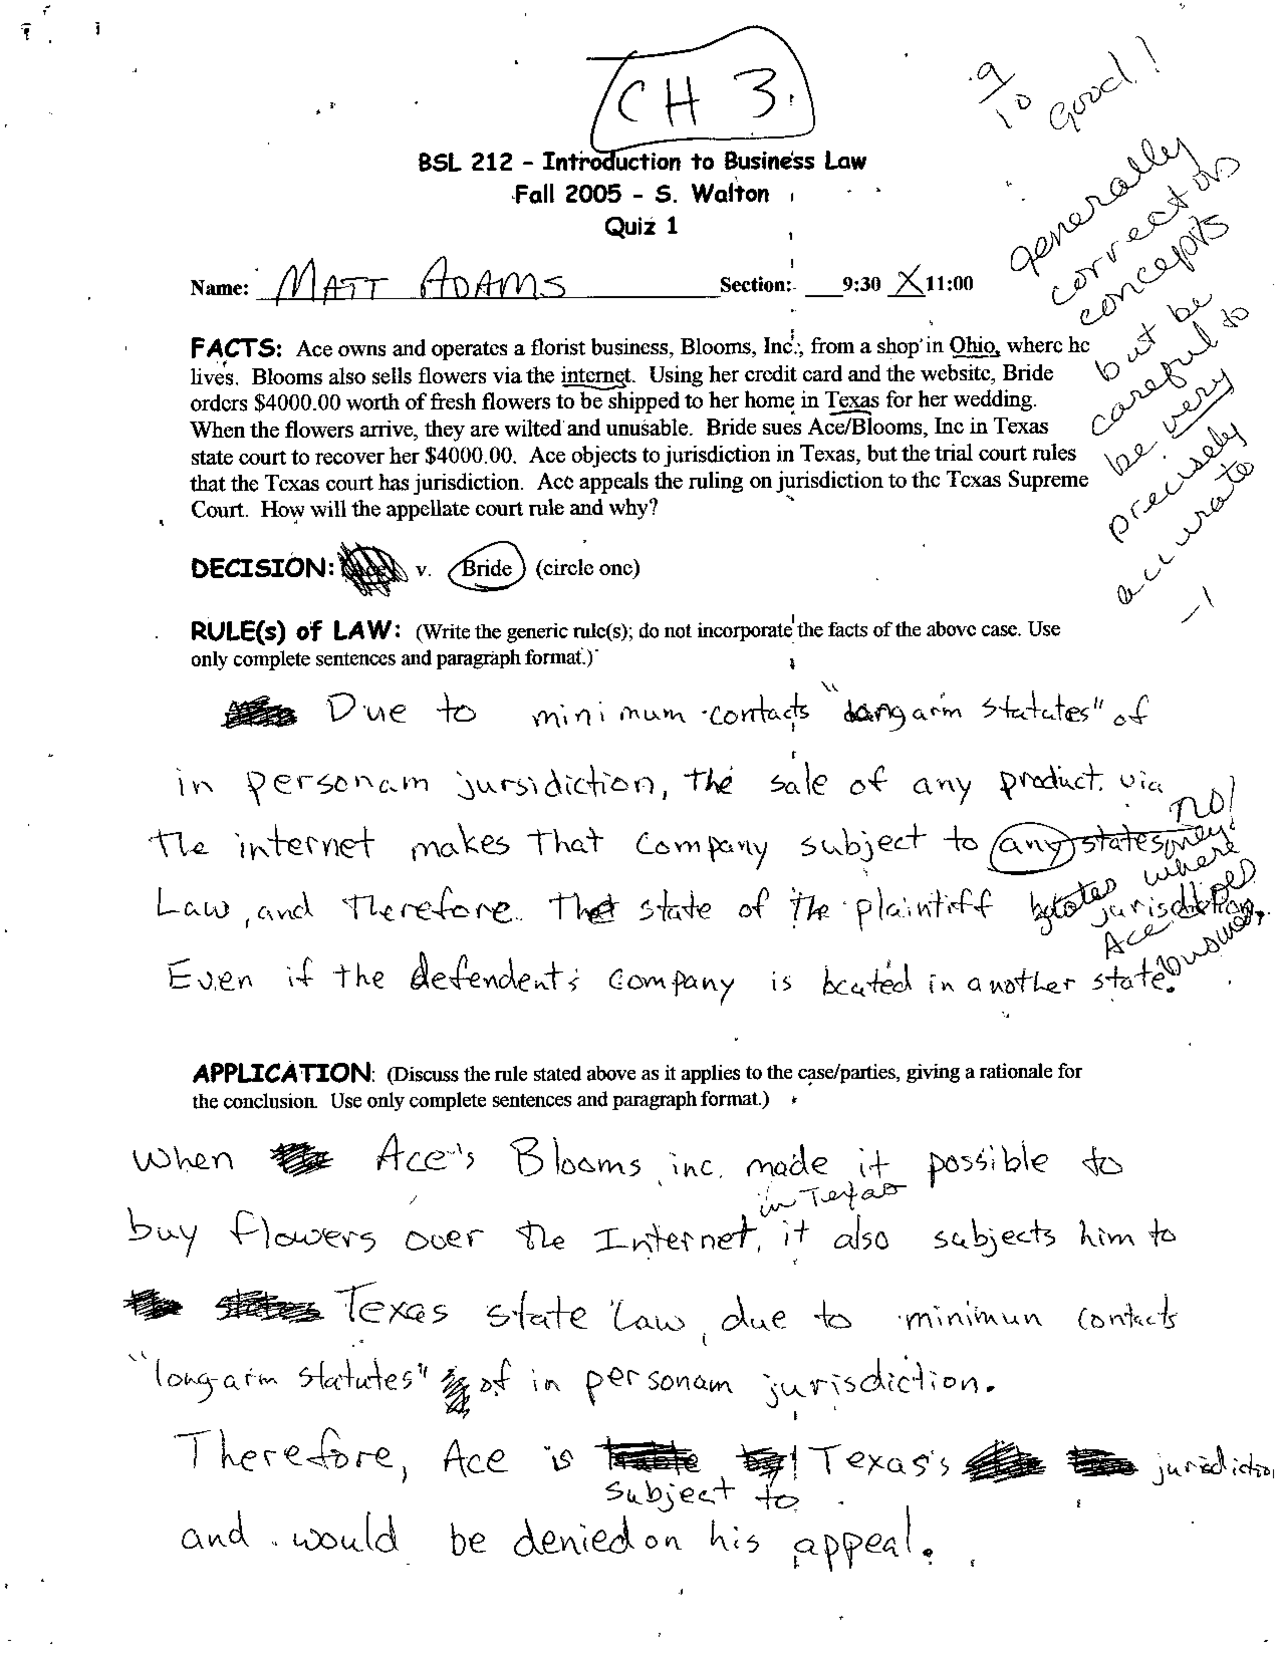 CH 3.
9/10 Good!
BSL 212 - Introduction to Business Law
Fall 2005 - S. Walton
Quiz 1
generally
correct on
concepts
but be
careful to
be very
precisely
accurate
-1
Name: MATT ADAMS Section: ___9:30 X 11:00
FACTS: Ace owns and operates a florist business, Blooms, Inc., from a shop in Ohio, where he
lives. Blooms also sells flowers via the internet. Using her credit card and the website, Bride
orders $4000.00 worth of fresh flowers to be shipped to her home in Texas for her wedding.
When the flowers arrive, they are wilted and unusable. Bride sues Ace/Blooms, Inc in Texas
state court to recover her $4000.00. Ace objects to jurisdiction in Texas, but the trial court rules
that the Texas court has jurisdiction. Ace appeals the ruling on jurisdiction to the Texas Supreme
Court. How will the appellate court rule and why?
DECISION: v. Bride (circle one)
RULE(s) of LAW: (Write the generic rule(s); do not incorporate the facts of the above case. Use
only complete sentences and paragraph format.)
Due to minimum contacts "long arm statutes" of
in personam jursidiction, the sale of any product via
the internet makes that company subject to any states
no! only
states where
Ace does
business
Law, and therefore the state of the plaintiff jurisdiction.
Even if the defendent's company is located in another state.
APPLICATION: (Discuss the rule stated above as it applies to the case/parties, giving a rationale for
the conclusion. Use only complete sentences and paragraph format.)
When Ace's Blooms inc. made it possible to
in Texas
buy flowers over the Internet, it also subjects him to
Texas state law, due to minimun contacts
"long-arm statutes" of in personam jurisdiction.
Therefore, Ace is Texas's jurisdiction
subject to
and would be denied on his appeal.